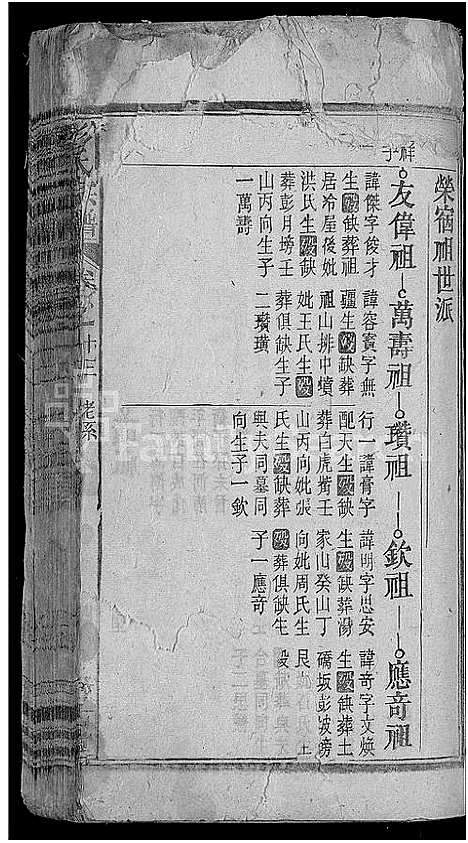 榮宿祖世派
祥子
友偉祖
萬壽祖
瓚祖
欽祖
應奇祖
諱傑字俊才
生歿缺葬祖
居冷屋後妣
洪氏生歿缺
葬彭月塝壬
山丙向生子
一萬壽
諱容賓字無
疆生歿缺葬
祖山排中墳
妣王氏生歿
葬俱缺生子
二瓚璜
行一諱膏字
配天生歿缺
葬白虎嘴壬
山丙向妣張
氏生歿缺葬
與夫同墓同
向生子一欽
諱明字思安
生歿缺葬湯
家山癸山丁
向妣周氏生
歿葬俱缺生
子一應奇
諱奇字文煥
生歿缺葬土
橋坂彭坡塝
艮
歿
氏族譜
卷之
十三
老系